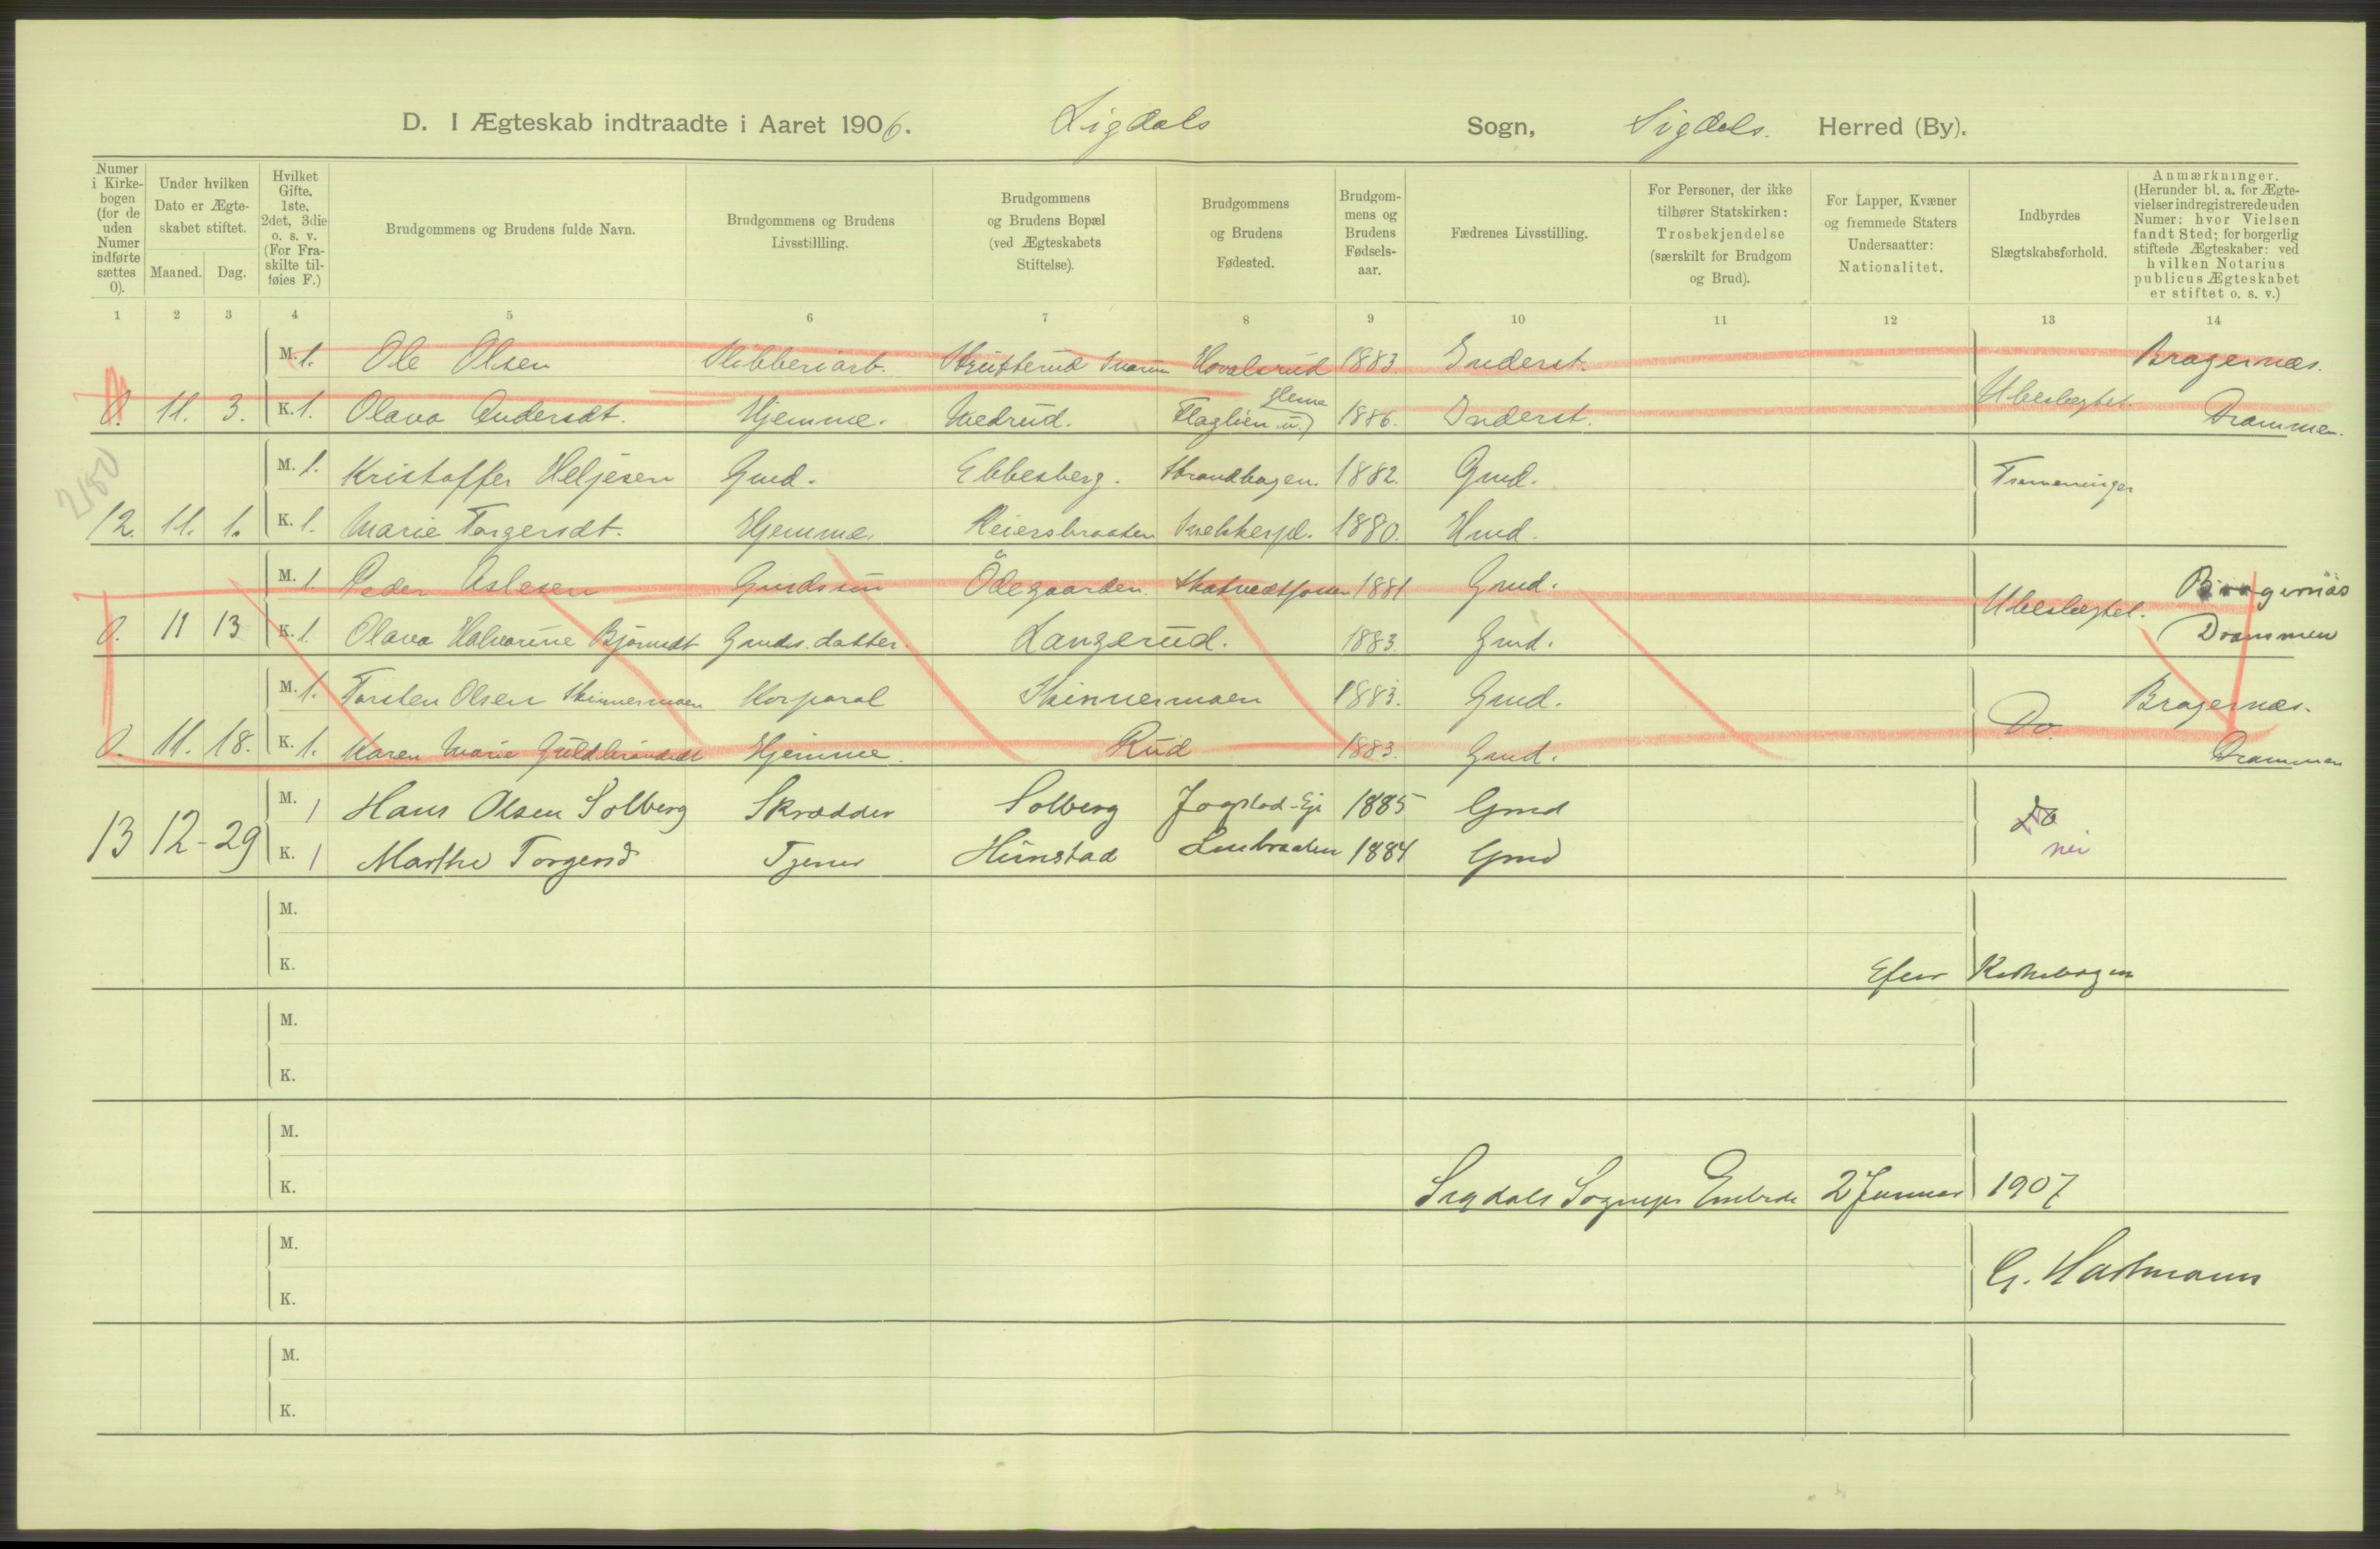 D. I Ægteskab indtraadte i Aaret 1906. Sigdals Sogn, Sigdals. Herred (By).
Numer i Kirkebogen (for de uden Numer indførte sættes 0).
Under hvilken Dato er Ægteskabet stiftet.
Maaned. Dag.
Hvilket Gifte. 1ste, 2det, 3die o. s. v. (For Fraskilte tilføies F.)
Brudgommens og Brudens fulde Navn.
Brudgommens og Brudens Livsstillling.
Brudgommens og Brudens Bopæl (ved Ægteskabets Stiftelse).
Brudgommens og Brudens Fødested.
Brudgommens og Brudens Fødselsaar.
Fædrenes Livsstilling.
For Personer, der ikke tilhører Statskirken: Trosbekjendelse (særskilt for Brudgom og Brud).
For Lapper, Kvæner og fremmede Staters Undersaatter: Nationalitet.
Indbyrdes Slægtskabsforhold.
Anmærkninger. (Herunder bl. a. for Ægtevielser indregistrerede uden Numer: hvor Vielsen fandt Sted; for borgerlig stiftede Ægteskaber: ved hvilken Notarius publicus Ægteskabet er stiftet o. s. v.)
1 2 3 4 5 6 7 8 9 10 11 12 13 14
M. 1. Ole Olsen Slibberiarb. Hovalsrud 1883. Inderst. Bragernæs.
0. 11. 3. K. 1. Olava Andersdt. Hjemme. Medrud. 1886. Inderst. Ubeslægtet. Drammen.
M. 1. Kristoffer Heljesen Gmd. Ebbesberg. Strandhagen. 1882. Gmd. Tremeninger
2180
12. 11. 1. K. 1. Marie Torgersdt. Hjemme. Reiersbraaten 1880. Hmd.
M. 1. Peder Aslesen Gmdssøn Ödegaarden. Skatvedtfossen 1881 Gmd. Bragernæs
0. 11 13 K. 1. Olava Halvorine Björnsdt Gmds. datter. Langerud. 1883. Gmd. Ubeslægtet. Drammen
M. 1. Torsten Olsen Skinnermoen Korporal Skinnermoen 1883. Gmd. Bragernæs.
0. 11. 18. K. 1. Karen Marie Guldbrandsdt Hjemme. Rud 1883. Gmd. Do. Drammen
M. 1 Hans Olsen Solberg Skrædder Solberg Jogstad-Eje 1885 Gmd Do
13 12-29 K. 1 Marthe Torgersd Tjener Hunstad 1884 Gmd nei
M.
K. Efter Kirkebogen
M.
K.
M.
K. Sigdals Sognepr Embede 2 Januar 1907
M.
G. Hartmann
K.
M.
K.